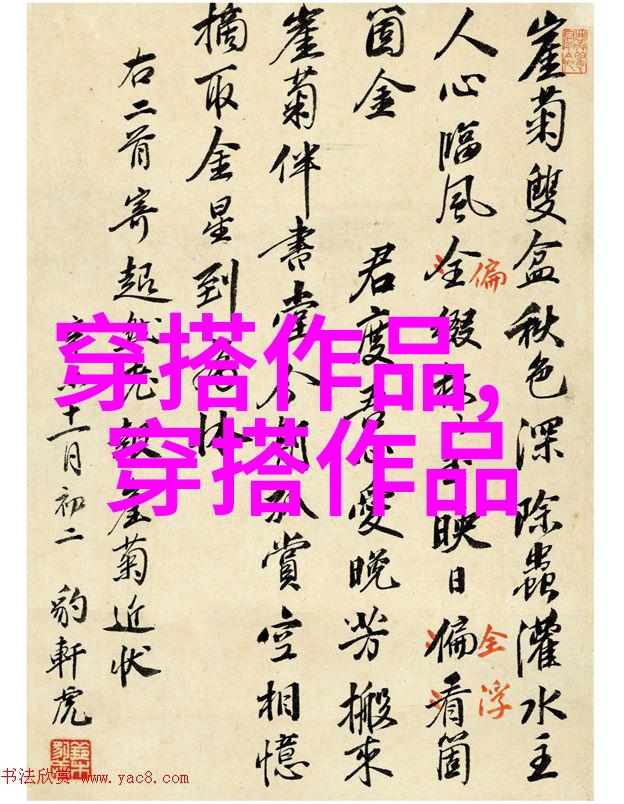 崖菊雙盆秋色深除蟲灌水主
人心臨風全綴映日偏看箇
偏
全浮
箇金
君度愛晚芳搬來
崖菊伴書堂賞空相憶
摘取金星到
右二首寄超崖菊近狀
十一月初二 豹軒虎
穿搭作品,
穿搭作品
书法欣赏 www.yac8.com